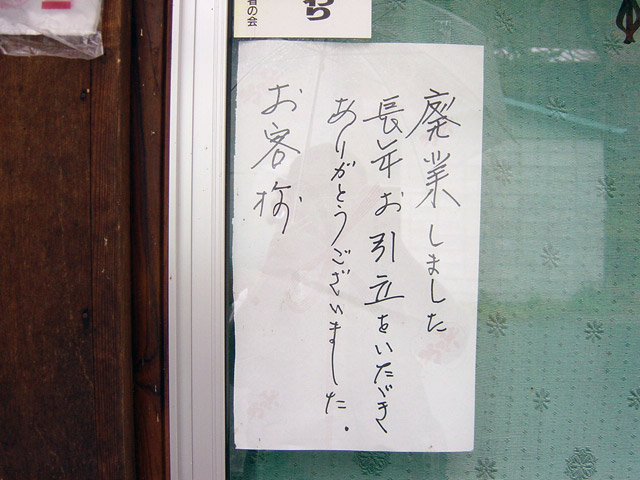 わり
者の会
廃業しました
長年お引立をいただき
ありがとうございました.
お客様